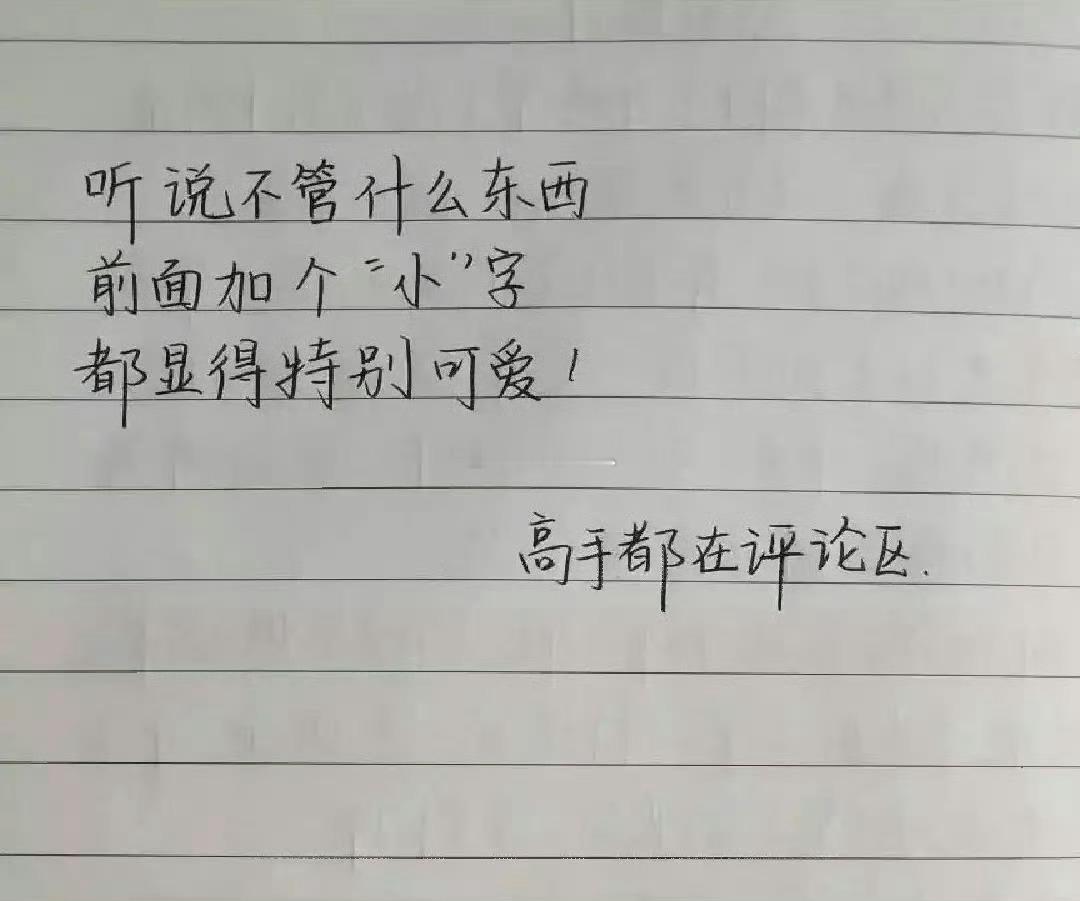 听说不管什么东西
前面加个“小”字
都显得特别可爱！
高手都在评论区.